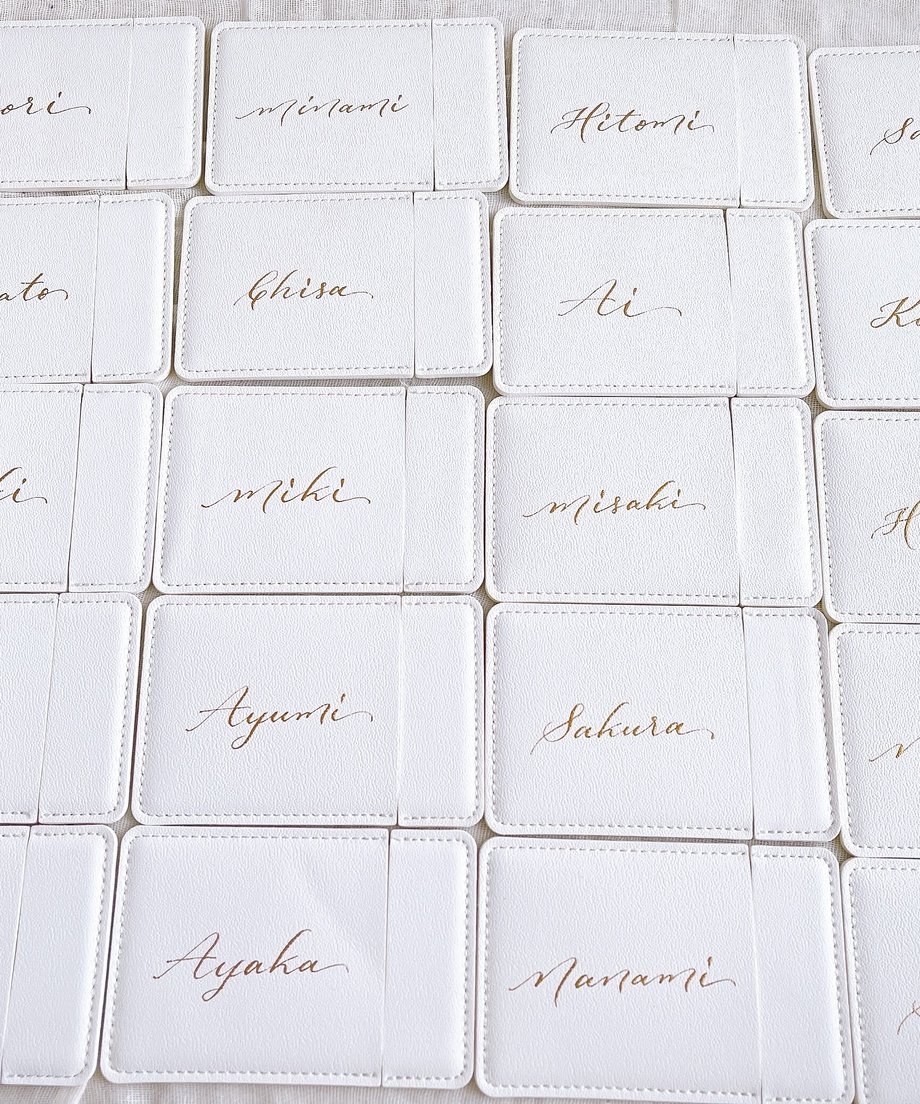 ori
minami
Hitomi
Sa
ato
Chisa
Ai
K
ki
miki
misaki
H
Ayumi
Sakura
Ayaka
Manami